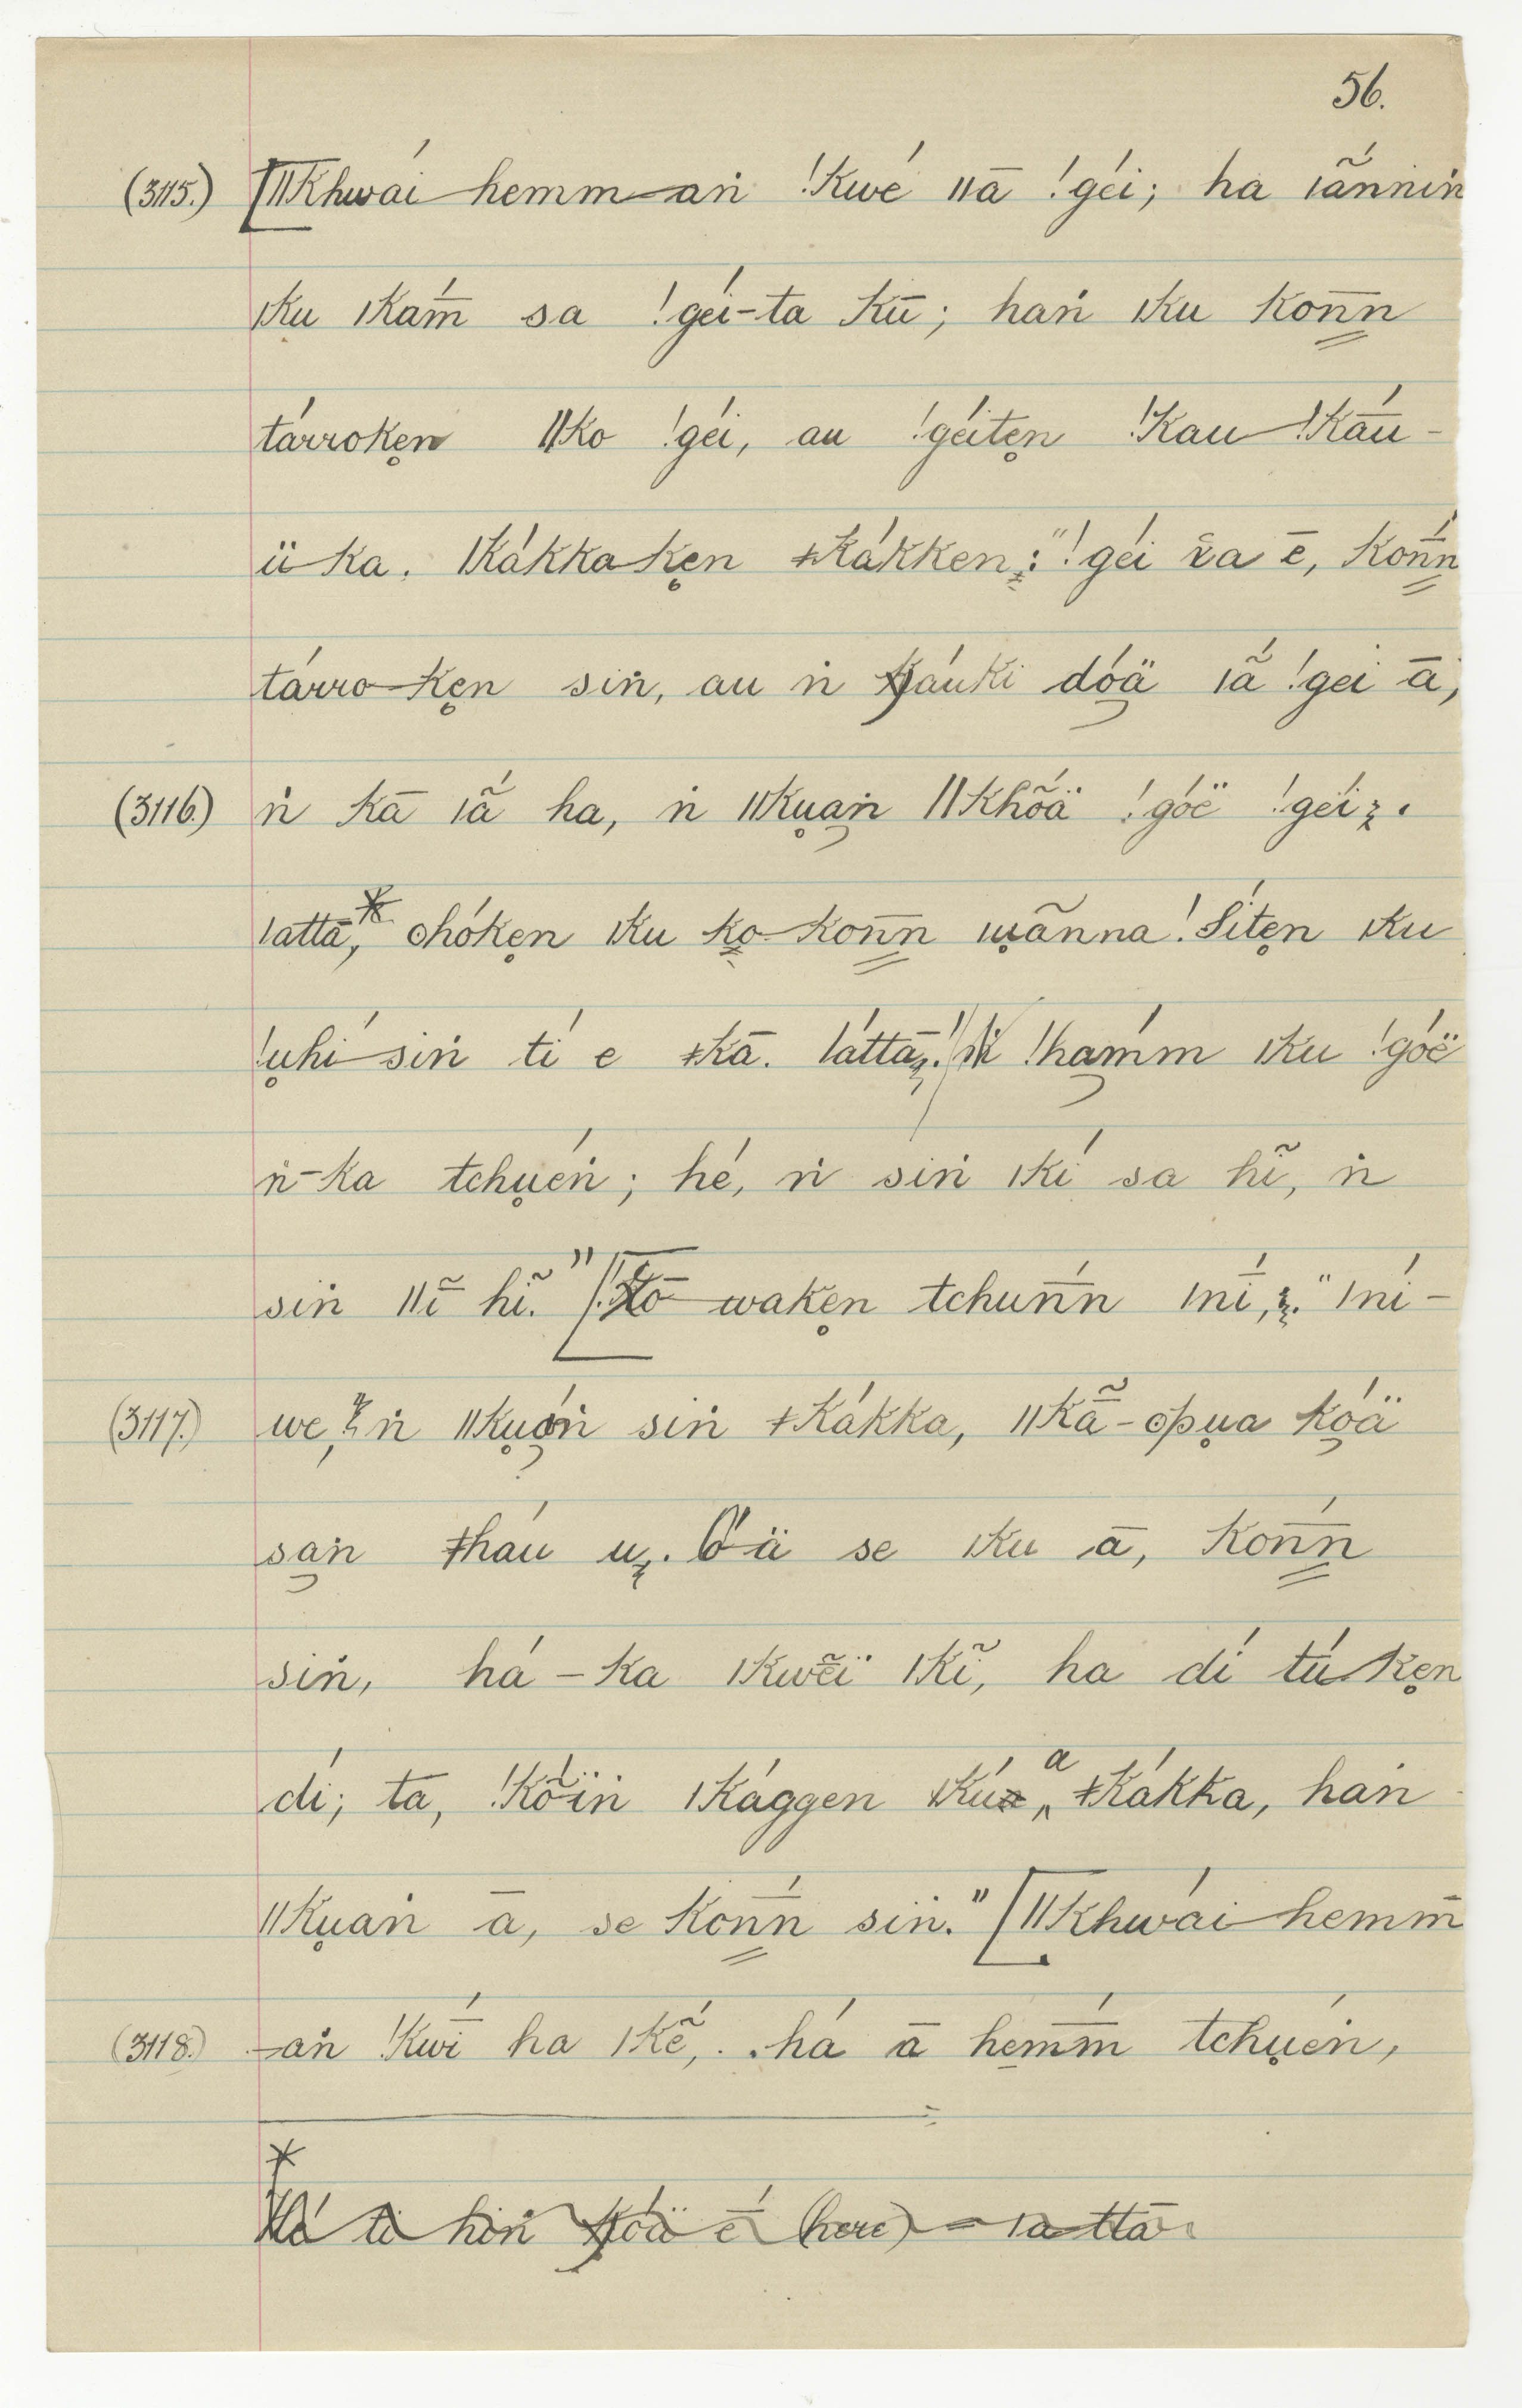 56.
(3115.) [ǁKhwái-hemm-aṅ !Kwé ǁā !géi; ha ǀã́nniṅ
ǀKu ǀKám̄ sa !géi-ta Kū; haṅ ǀKu Kon̄n
tárroKẹn ǁKo !géi, au !géitẹn !Kau-!Kā́u-
ü-Ka. ǀKákka-Kẹn ǂKákken: "!géi x̄a ē, Kon̄́n
tárro-Kẹn siṅ, au ṅ káuKi dóä ǀã́ !gei ā,
(3116.) ṅ Kā ǀã́ ha, ṅ ǁKu̥aṅ ǁKhṍä !góë !géi.
ǀattā,* ʘhóKẹn ǀKu ko-Kon̄n ǀu̥ãnna! Sítẹn ǀKu
!u̥hí-siṅ tí e ǂKā. ǀáttā!" ṅ !hamḿ ǀKu !góë
ṅ-Ka tchu̥éṅ; hé, ṅ siṅ ǀKí sa hĩ, ṅ
siṅ ǁĩ hĩ." [!Kō-waKẹn tchun̄́n ǀnī́, "ǀní-
we, ṅ ǁKu̥áṅ siṅ ǂKákka, ǁKã̄-ʘpu̥a Kóä
saṅ ǂháu u. Óä se ǀKu ā, Kon̄́n
(3117.)
siṅ, há-Ka ǀKwẽï ǀKĩ, ha dí tú-Kẹn
dí; ta, !Kṍïṅ ǀKággen ǀKú a ǂKákka, haṅ
ǁKu̥aṅ ā, se Kon̄́n siṅ." [ǁKhwái-hemm̄
(3118.) -aṅ !Kwī́ ha ǀKẽ́, há ā hem̄́m tchu̥éṅ,
*
Hé ti hiṅ Kóä ḗ (here) = ǀa-ttā